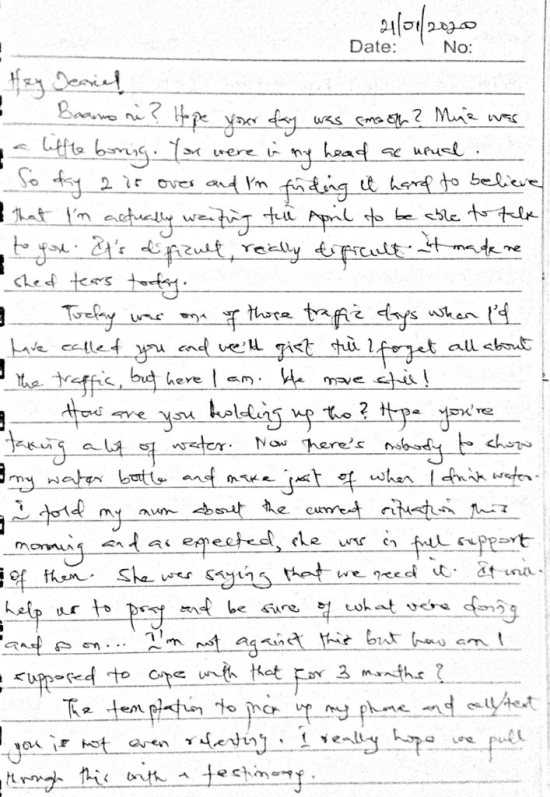 21/01/2020
Date: No:
Hey Dearie!
Baawo ni? Hope your day was smooth? Mine was
a little boring. You were in my head as usual.
So day 2 is over and I'm finding it hard to believe
that I'm actually waiting till April to be able to talk
to you. It's difficult, really difficult. It made me
shed tears today.
Today was one of those traffic days when I'd
have called you and we'll gist till I forget all about
the traffic, but here I am. We move still!
How are you holding up tho? Hope you're
taking a lot of water. Now there's nobody to show
my water bottle and make jest of when I drink water.
I told my mum about the current situation this
morning and as expected, she was in full support
of them. She was saying that we need it. It will
help us to pray and be sure of what we're doing
and so on... I'm not against this but how am I
supposed to cope with that for 3 months?
The temptation to pick up my phone and call/text
you is not even relenting. I really hope we pull
through this with a testimony.